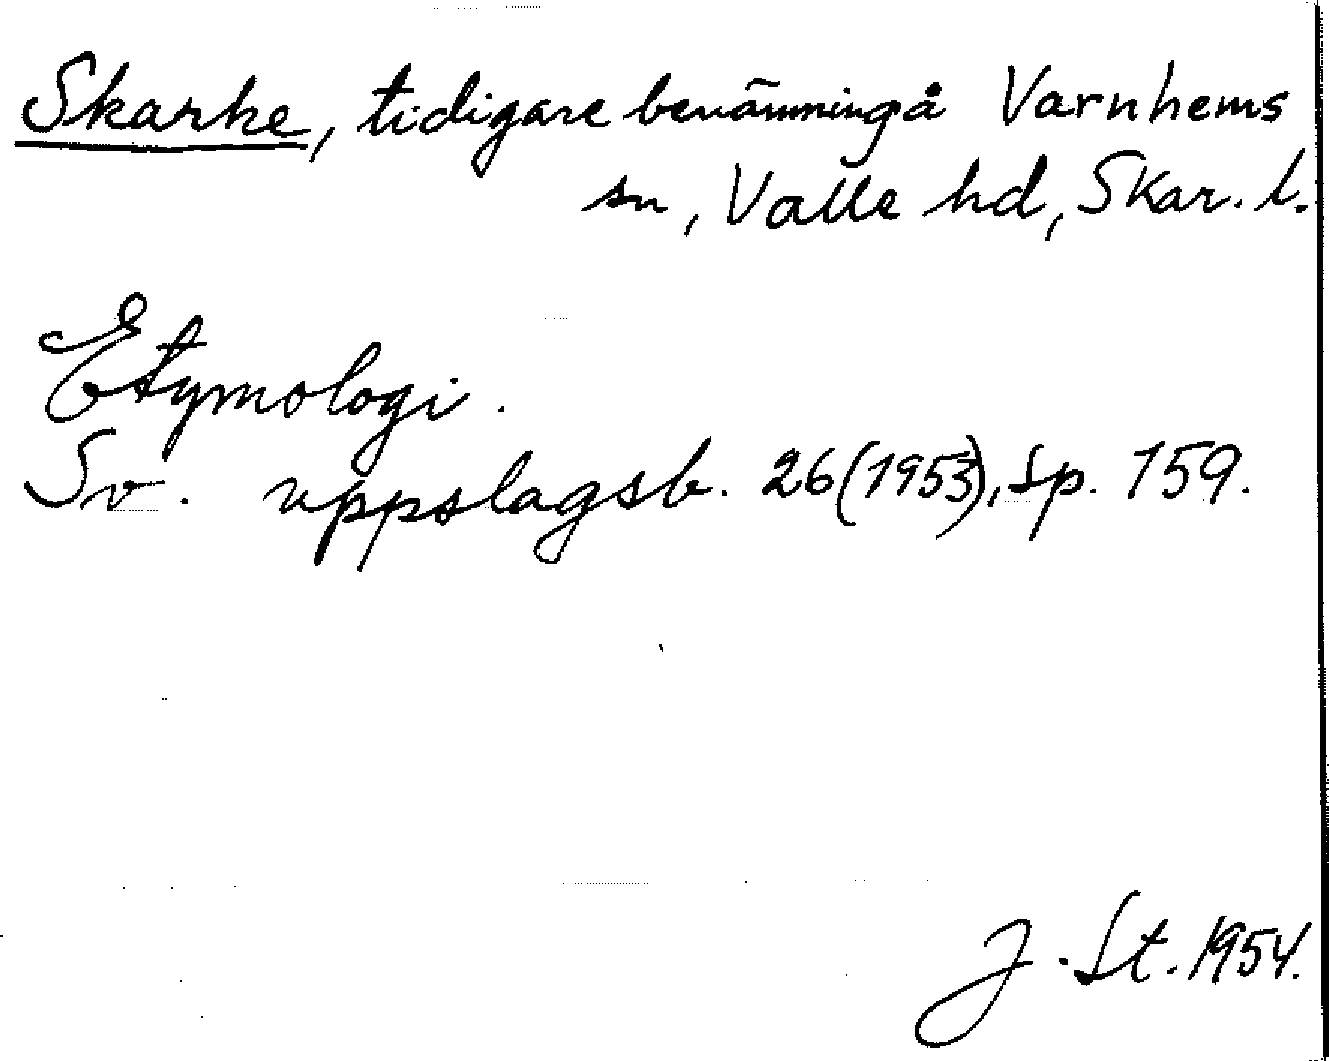 Skarke, tidigare benämning å Varnhems
sn, Valle hd, Skar. l.
Etymologi.
Sv. uppslagsb. 26 (1953), sp. 159.
J. St. 1954.